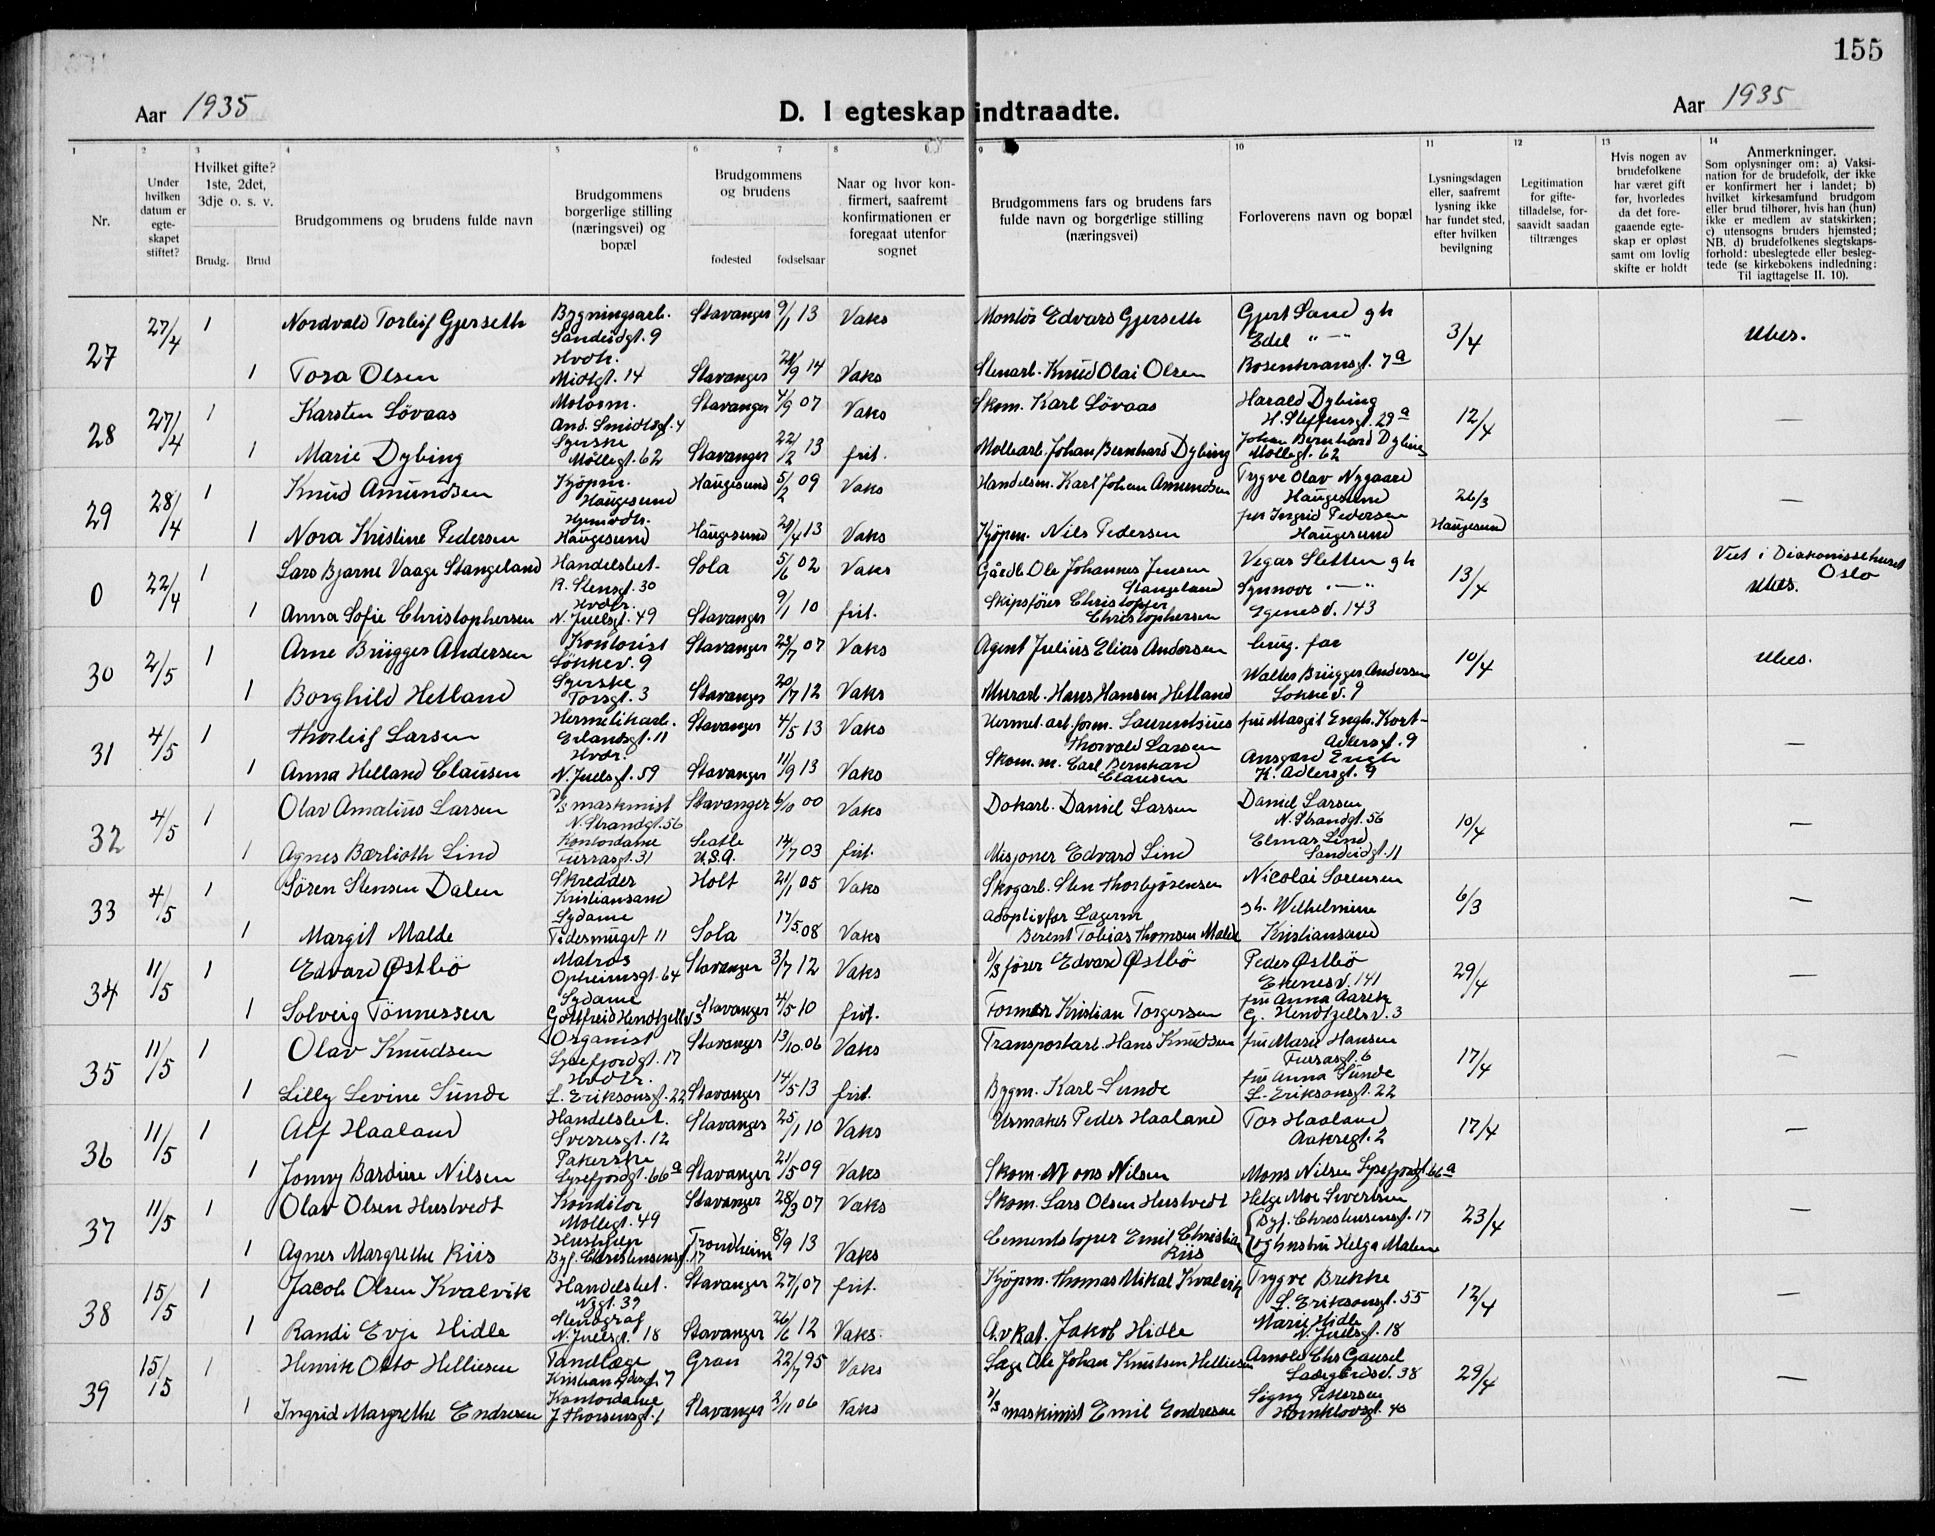 155
Aar 1935
D. I egteskap indtraadte.
Aar 1935
1 2 3 4 5 6 7 8 9 10 11 12 13 14
Nr.
Under hvilken datum er egte-skapet stiftet?
Hvilket gifte? 1ste, 2det, 3dje o. s. v.
Brudg. Brud
Brudgommens og brudens fulde navn
Brudgommens borgerlige stilling (næringsvei) og bopæl
Brudgommens og brudens
fødested fødselsaar
Naar og hvor kon-firmert, saafremt konfirmationen er foregaat utenfor sognet
Brudgommens fars og brudens fars fulde navn og borgerlige stilling (næringsvei)
Forloverens navn og bopæl
Lysningsdagen eller, saafremt lysning ikke har fundet sted, efter hvilken bevilgning
Legitimation for gifte-tilladelse, for-saavidt saadan tiltrænges
Hvis nogen av brudefolkene har været gift før, hvorledes da det fore-gaaende egte-skap er opløst samt om lovlig skifte er holdt
Anmerkninger.
Som oplysninger om: a) Vaksi-nation for de brudefolk, der ikke er konfirmert her i landet; b) hvilket kirkesamfund brudgom eller brud tilhører, hvis han (hun) ikke er medlem av statskirken; c) utensogns bruders hjemsted; NB. d) brudefolkenes slegtskaps-forhold: ubeslegtede eller besleg-tede (se kirkebokens indledning: Til iagttagelse II. 10).
27 27/4 1 Nordvald Torleif Gjerseth Bygningsarb. Sandeidgt. 9 Stavanger 9/1 13 Vaks Montør Edvard Gjerseth Gjert Sand gh Edel " — " 3/4 Ubes.
1 Tora Olsen Hvdtr. Midtgt. 14 Stavanger 29 14 Vaks Stenarb. Knud Olai Olsen Rosenkransgt. 7a
28 27/4 1 Karsten Løvaas And. Smidtsgt. 4 Stavanger 4/9 07 Vaks Skom. Karl Løvaas Harald Dybing H. Steffensgt. 29a 12/4 —
1 Marie Dybing Syerske Møllegt. 62 Stavanger 22/2 13 frit. Møllearb. Johan Bernhard Dybing Johan Bernhard Dybing Møllegt. 62
29 28/4 1 Knud Amundsen Kjøpm. Haugesund Haugesund 5/2 09 Vaks Handelsm. Karl Johan Amundsen Trygve Olav Nygaard Haugesund 26/3 Haugesund —
1 Nora Kristine Pedersen Haugesund Haugesund 29/4 13 Vaks Kjøpm. Nils Pedersen frk Ingrid Pedersen Haugesund
0 22/4 1 Lars Bjarne Vaage Stangeland Handelsbet. R. Stensgt. 30 Sola 5/6 02 Vaks Gårdb. Ole Johannes Jensen Stangeland Vegar Sletten gh Synnøve — " 13/4 Viet i Diakonissehuset Oslo Ubes.
1 Anna Sofie Christophersen Hvdtr. N. Juelsgt. 49 Stavanger 9/1 10 frit. Skipsfører Christopher Christophersen Egenesv. 143
30 2/5 1 Arne Brügger Andersen Kontorist Løkkev. 9 Stavanger 25/7 07 Vaks Agent Julius Elias Andersen brug. far 10/4 Ubes.
1 Borghild Hetland Syerske Torsgt. 3 Stavanger 20/7 12 Vaks Murarb. Hans Hansen Hetland Walter Brügger Andersen Løkkev. 9
31 4/5 1 Thorleif Larsen Hermetikarb. Erlandsgt. 11 Stavanger 4/5 13 Vaks Hermet. arb. form. Laurentsius Thorvald Larsen fru Margit Engh. Kort-Adlersgt. 9 —
1 Anna Helland Clausen Hvdtr. N. Juelsgt. 59 Stavanger 11/9 13 Vaks Skom. m. Carl Bernhard Clausen Ansgard Engh K. Adlersgt. 9
32 4/5 1 Olav Amalius Larsen D/S maskinist N. Strandgt. 56 Stavanger 6/10 00 Vaks Dokarb. Daniel Larsen Daniel Larsen N. Strandgt. 56 10/4 —
1 Agnes Bærlioth Lind Kontordame Furrasgt. 31 Seatle U.S.A. 14/7 03 frit. Misjoner Edvard Lind Elmar Lind Sandeidgt. 11
33 4/5 1 Søren Stensen Dalen Skredder Kristiansand Holt 21/1 05 Vaks Skogarb. Sten Thorbjørnsen Nicolai Sørensen 6/3 —
1 Margit Malde Sydame Pedersmuget 11 Sola 17/5 08 Vaks adoptivfar Lagerm Berent Tobias Thomsen Malde gh. Wilhelmine Kristiansand
34 11/5 1 Edvard Østbø Matros Opheimsgt. 64 Stavanger 3/7 12 Vaks D/S fører Edvard Østbø Peder Østbø Ekenesv. 141 29/4 —
1 Solveig Tønnessen Sydame Gottfreid Hendtzellsv. 3 Stavanger 4/5 10 frit. Former Kristian Torgersen fru Anna Aarek G. Hendtzellsv. 3
35 11/5 1 Olav Knudsen Organist Lysefjordgt. 17 Stavanger 13/10 06 Vaks Transportarb. Hans Knudsen fru Marie Hansen Furrasgt. 6 17/4 —
1 Lilly Levine Sunde Hvdtr. L. Eriksonsgt. 22 Stavanger 14/5 13 frit. Bygm. Karl Sunde fru Anna Sunde L. Eriksonsgt. 22
36 11/5 1 Alf Haaland Handelsbet. Sverresgt. 12 Stavanger 25/1 10 Vaks Urmaker Peder Haaland Tor Haaland Aakregt. 2 17/4 —
1 Jonny Bardine Nilsen Pakerske Lysefjordgt. 66a Stavanger 21/5 09 Vaks Skom. Mons Nilsen Mons Nilsen Lysefjordgt. 66a
37 11/5 1 Olav Olsen Hustvedt Konditor Møllegt. 49 Stavanger 28/3 07 Vaks Skom. Lars Olsen Hustvedt Helge Moe Sivertsen Byf. Christensensgt. 17 23/4 —
1 Agnes Margrethe Riis Byf. Christensensgt. 17 Trondheim 8/9 13 Vaks Cementstøper Emil Christian Riis og hustru Helga Malene
38 15/5 1 Jacob Olsen Kvalevik Handelsbet. Nygt. 39 Stavanger 27/1 07 frit. Kjøpm. Thomas Mikal Kvalevik Trygve Brekke L. Eriksonsgt. 55 12/4 —
1 Randi Evje Hidle Stenograf N. Juelsgt. 18 Stavanger 26/6 12 Vaks. Advokat. Jakob Hidle Marie Hidle N. Juelsgt. 18
39 15/5 1 Henrik Otto Helliesen Tandlæge Gran 22/7 95 Vaks Læge Ole Johan Knutsen Helliesen Arnold Chr Gausel Ladegårdsv. 38 29/4 —
1 Ingrid Margrethe Endresen Kontordame J. Thorsensgt. 1 Stavanger 2/11 06 Vaks D/S maskinist Emil Endresen Signy Pettersen Hornklovsgt. 40